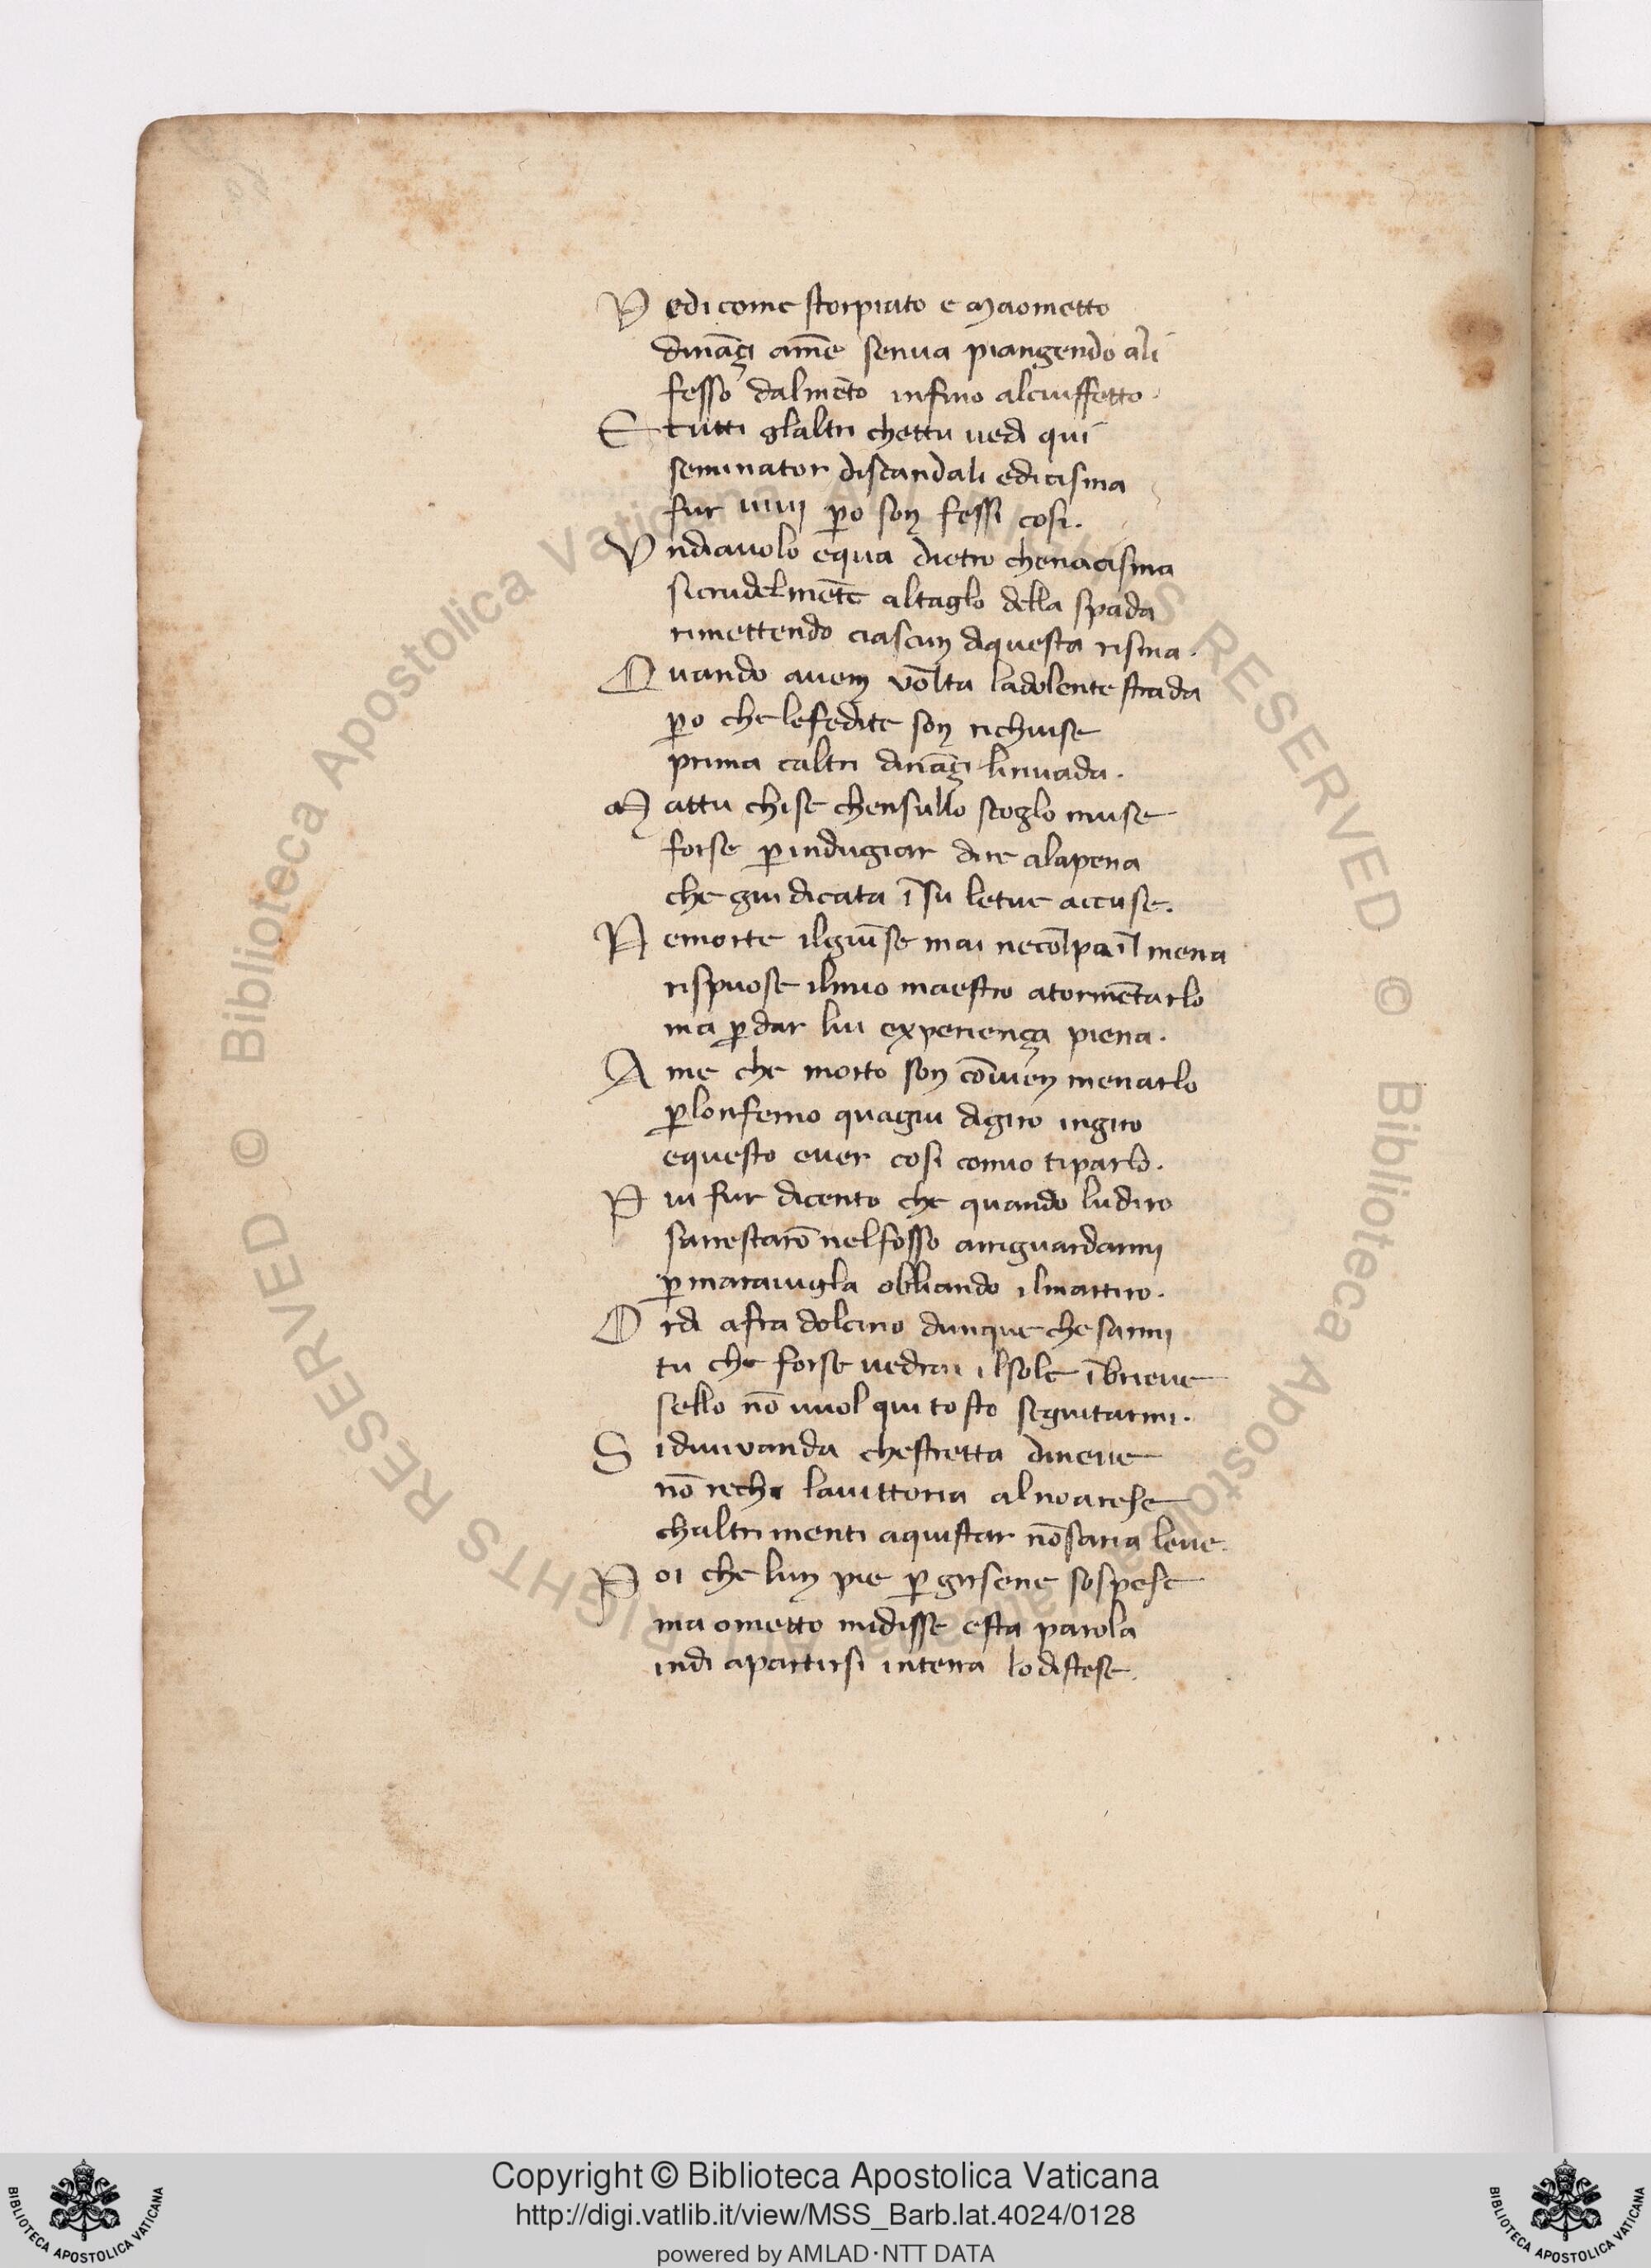 V edi come storpiato e maometto
dināçi amēe senua piangendo ali
fesso dalmēto infino alciuffetto.
E tutti glaltri chettu uedi qui
seminator discandali edicisma
fur uiui p̱o son fessi cosi.
V ndiauolo equa dietro chenacisma
sicrudelmēte altaglo della spada
rimettendo ciascun diquesta risma.
Q uando auem vōlta ladolente strada
p̱o che lefedite son richiuse
prima caltri dināçi liriuada.
M attu chise chensullo scoglo muse
forse p̱indugiar dire alapena
che giudicata ī su letue accuse.
N emorte ilgiūse mai necōlpa īl mena
rispuose ilmio maestro atormētarlo
ma p̱dar lui experiença piena.
A me che morto son cōuien menarlo
p̱lonferno quagiu digiro ingiro
equesto euer cosi comio tiparlo.
P iu fur dicento che quando ludiro
sarrestarō nelfosso arriguardarmi
p̱marauigla obliando ilmartiro.
O rdi afra dolcino dunque che sarmi
tu che forse uedrai ilsole ībrieue
sello nō uuol qui tosto seguitarmi.
S idiuiuanda chestretta dineue
nō rechi lauittoria alnoarese
chaltrimenti aquistar nōsaria leue.
P oi che lun pie p̱ girsene sospese
maometto midisse esta parola
indi apartirsi interra lodistese.
Copyright © Biblioteca Apostolica Vaticana
http://digi.vatlib.it/view/MSS_Barb.lat.4024/0128
powered by AMLAD·NTT DATA
BIBLIOTECA APOSTOLICA VATICANA
BIBLIOTECA APOSTOLICA VATICANA
© Biblioteca Apostolica Vaticana ALL RIGHTS RESERVED © Biblioteca Apostolica Vaticana ALL RIGHTS RESERVED